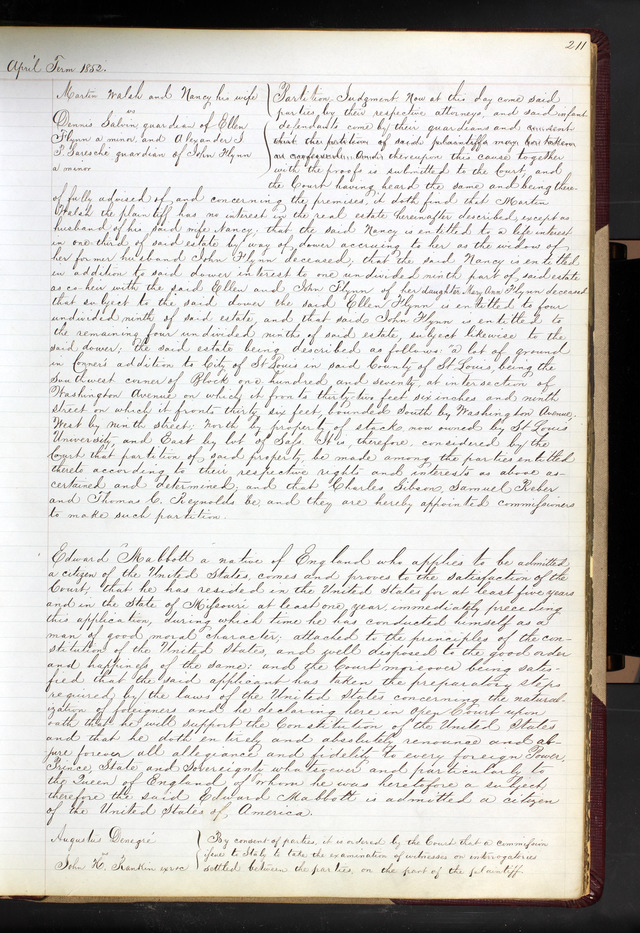 211
April Term 1852.
Martin Walsh and Nancy his wife
vs
Dennis Galvin guardian of Ellen
Flynn a minor and Alexander J
P. Garesché guardian of John Flynn
a minor
Partition Judgment. Now at this day come said
parties, by their respective attorneys, and said infant
defendants come by their guardians and consent
that the petition of said plaintiffs may be taken
as confessed. And thereupon this cause together
with the proofs is submitted to the Court, and
the Court having heard the same and being there-
of fully advised of, and concerning the premises, it doth find that Martin
Walsh the plaintiff has no interest in the real estate hereinafter described, except as
husband of his said wife Nancy; that the said Nancy is entitled to a life interest
in one third of said estate by way of dower accruing to her as the widow of
her former husband John Flynn deceased; that the said Nancy is entitled
in addition to said dower interest to one undivided ninth part of said estate
as co-heir with the said Ellen and John Flynn of her daughter Mary Ann Flynn deceased
that subject to the said dower the said Ellen Flynn is entitled to four
undivided ninths of said estate, and that said John Flynn is entitled to
the remaining four undivided ninths of said estate, subject likewise to the
said dower; the said estate being described as follows: a lot of ground
in Conner's addition to City of St Louis in said County of St Louis, being the
Southwest corner of Block one hundred and seventy, at intersection of
Washington Avenue on which it fronts thirty two feet six inches and ninth
street on which it fronts thirty six feet, bounded South by Washington Avenue;
West by ninth street; North by property of stock now owned by St Louis
University and East by lot of Safs. It is, therefore, considered by the
Court that partition of said property be made among the parties entitled
thereto according to their respective rights and interests as above as-
certained and determined, and that Charles Gibson, Samuel Reber
and Thomas C. Reynolds be and they are hereby appointed commissioners
to make such partition.
Edward Mabbott a native of England who applies to be admitted
a citizen of the United States, comes and proves to the satisfaction of the
Court, that he has resided in the United States for at least five years
and in the State of Missouri at least one year, immediately preceding
this application, during which time he has conducted himself as a
man of good moral character; attached to the principles of the con-
stitution of the United States, and well disposed to the good order
and happiness of the same; and the Court moreover being satis-
fied that the said applicant has taken the preparatory steps
required by the laws of the United States concerning the natural-
ization of foreigners and he declaring here in open Court upon
oath that he will support the Constitution of the United States
and that he doth entirely and absolutely renounce and ab-
jure forever all allegiance and fidelity to every foreign Power,
Prince, State and Sovereignty whatsoever and particularly to
the Queen of England of whom he was heretofore a subject,
therefore the said Edward Mabbott is admitted a citizen
of the United States of America.
Augustus Denegré
vs
John K. Rankin exr &c
By consent of parties, it is ordered by the Court that a commission
issue to Italy to take the examination of witnesses on interrogatories
settled between the parties, on the part of the plaintiff.